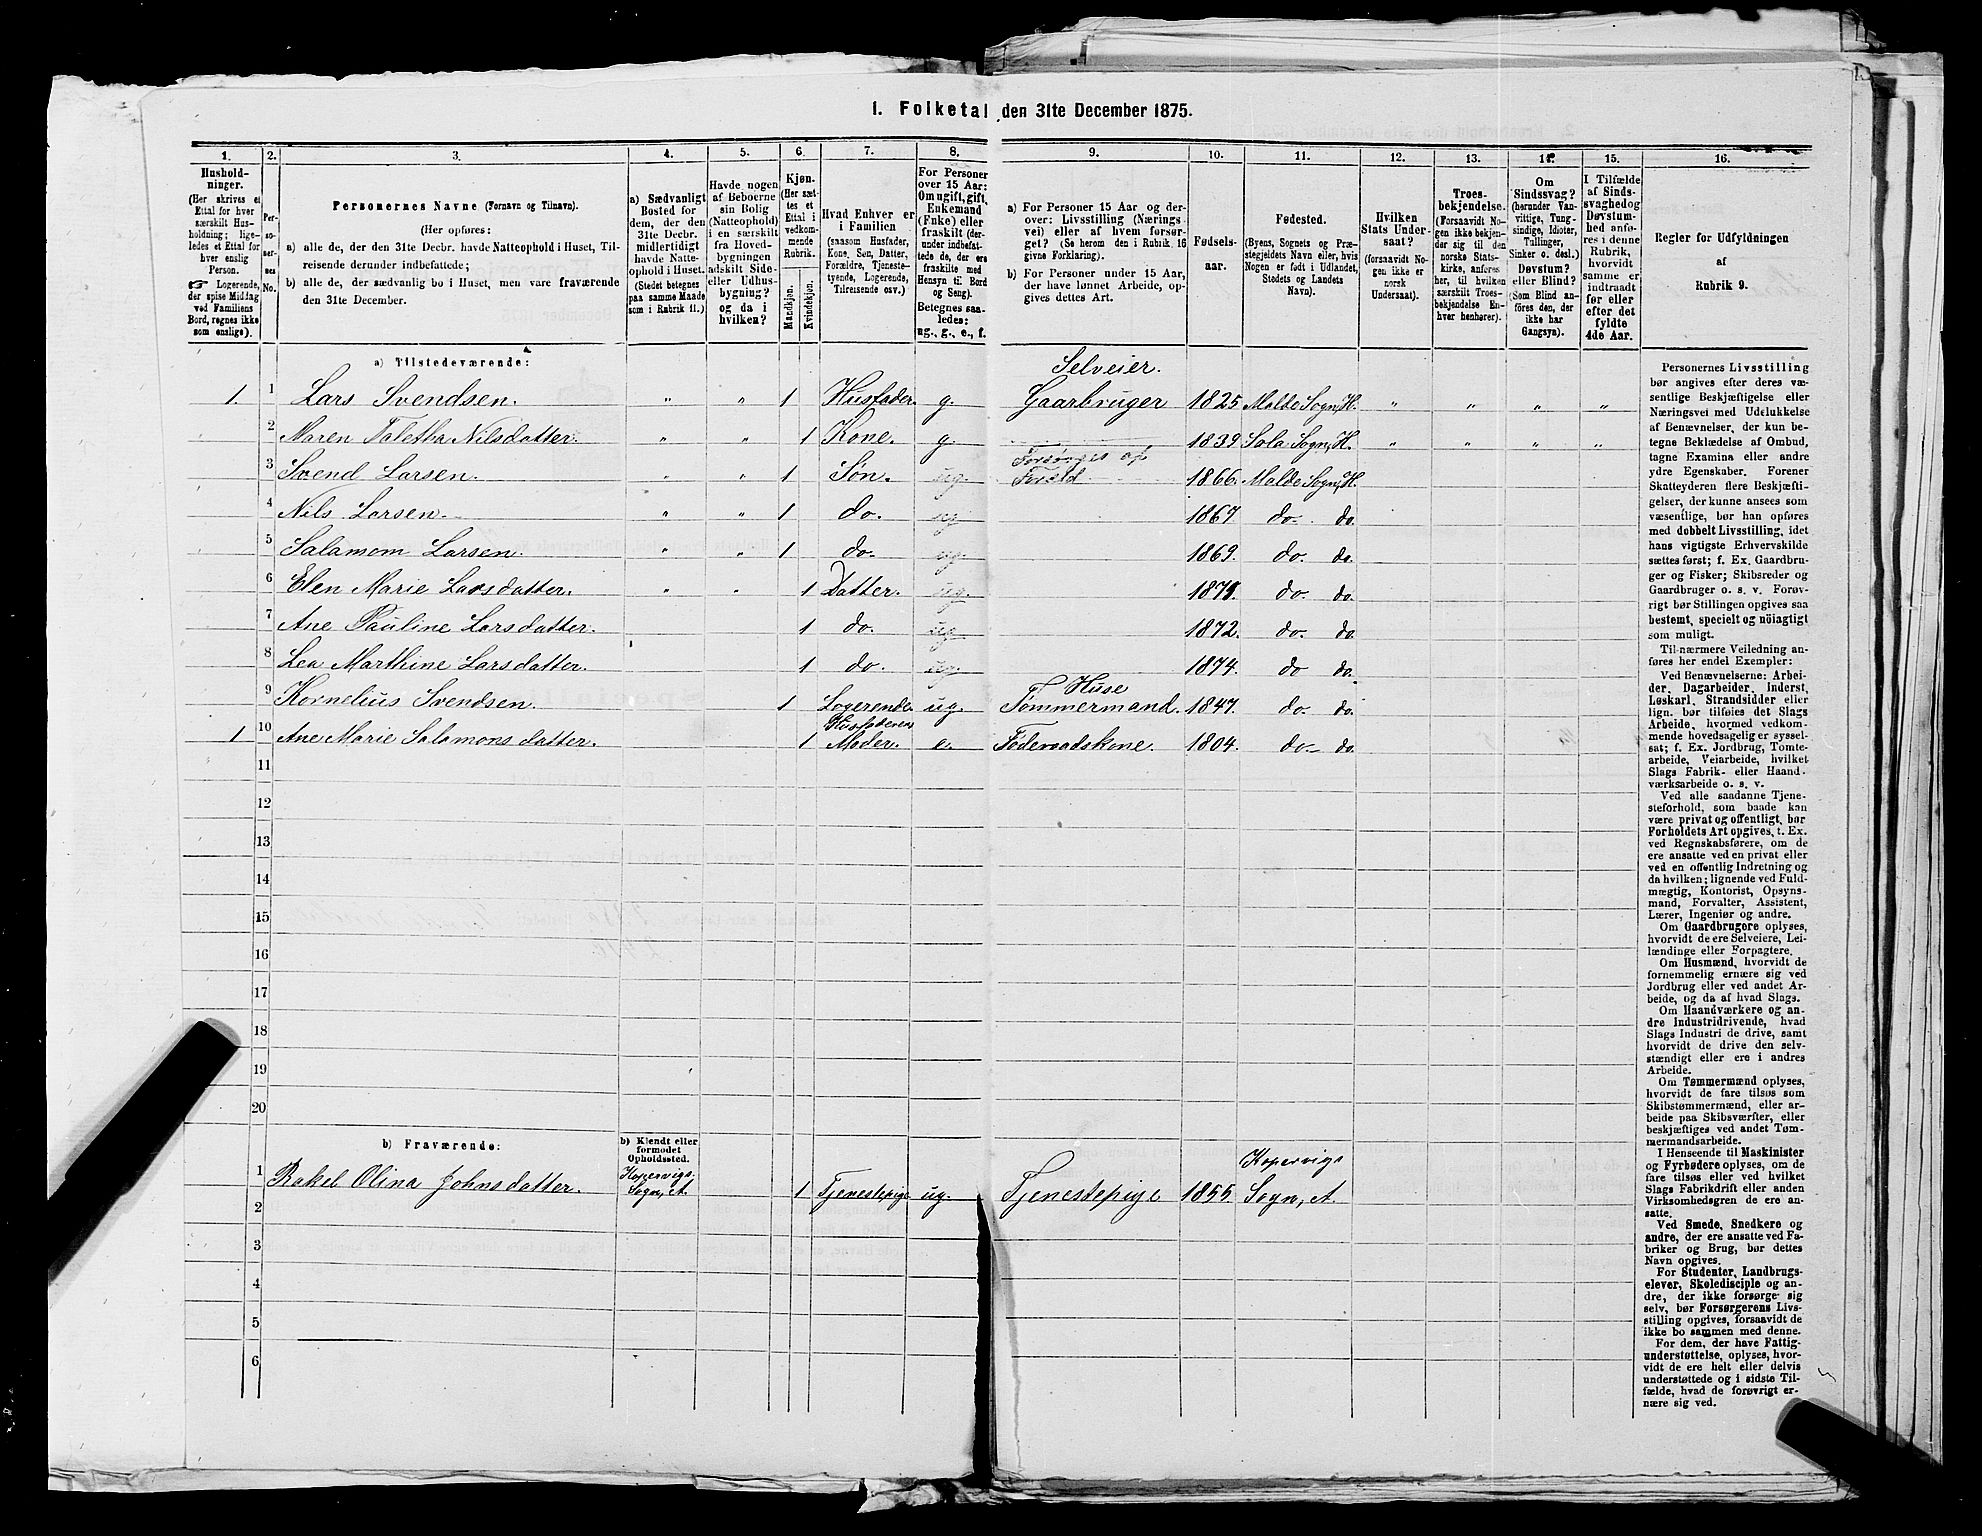 1. Folketal den 31te December 1875.
1. 2. 3. 4. 5. 6. 7. 8. 9. 10. 11. 12. 13. 14. 15. 16.
Hushold-
ninger.
(Her skrives et
Ettal for hver
særskilt Hus-
holdning; lige-
ledes et Ettal for
hver enslig
Person.
☞ Logerende,
der spise Middag
ved Familiens
Bord, regnes ikke
som enslige).
Per-
so-
ner-
nes
No.
Personernes Navne (Fornavn og Tilnavn).
(Her opføres:
a) alle de, der den 31te Decbr. havde Natteophold i Huset, Til-
reisende derunder indbefattede;
b) alle de, der sædvanlig bo i Huset, men vare fraværende
den 31te December.
a) Sædvanligt
Bosted for
dem, der den
31te Decbr.
midlertidigt
havde Natte-
ophold i Huset.
(Stedet betegnes
paa samme Maade
som i Rubrik 11.)
Havde nogen
af Beboerne
sin Bolig
(Natteophold)
i en særskilt
fra Hoved-
bygningen
adskilt Side-
eller Udhus-
bygning?
og da i
hvilken?
Kjøn.
(Her sæt-
tes et
Ettal i
vedkom-
mende
Rubrik.
Mandkjøn.
Kvindekjøn.
Hvad Enhver er
i Familien
(saasom Husfader,
Kone, Søn, Datter,
Forældre, Tjeneste-
tyende, Logerende,
Tilreisende osv.)
For Personer
over 15 Aar:
Om ugift, gift,
Enkemand
(Enke) eller
fraskilt (der-
under indbefat-
tede de, der ere
fraskilte med
Hensyn til Bord
og Seng).
Betegnes saa-
ledes:
ug., g., e., f.
a) For Personer 15 Aar og der-
over: Livsstilling (Nærings-
vei) eller af hvem forsør-
get? (Se herom den i Rubrik 16
givne Forklaring).
b) For Personer under 15 Aar,
der have lønnet Arbeide, op-
gives dettes Art.
Fødsels-
aar.
Fødested.
(Byens, Sognets og Præ-
stegjeldets Navn eller, hvis
Nogen er født i Udlandet,
Stedets og Landets
Navn).
Hvilken
Stats Under-
saat?
(forsaavidt No-
gen ikke er
norsk
Undersaat).
Troes-
bekjendelse.
(Forsaavidt No-
gen ikke bekjen-
der sig til den
norske Stats-
kirke, anføres
her, til hvilken
særskilt Troes-
bekjendelse En-
hver henhører).
Om
Sindssvag?
(herunder Van-
vittige, Tung-
sindige, Idioter,
Tullinger,
Sinker o. desl.)
Døvstum?
eller Blind?
(Som Blind an-
føres den, der
ikke har
Gangsyn).
I Tilfælde
af Sinds-
svaghed og
Døvstum-
hed anfø-
res i denne
Rubrik,
hvorvidt
samme er
indtraadt
før eller
efter det
fyldte
4de Aar.
Regler for Udfyldningen
af
Rubrik 9.
a) Tilstedeværende:
Selveier.
1. 1 Lars Svendsen. " " 1 Husfader. g. Gaarbruger 1825 Malde Sogn, H. " " " "
2 Maren Taletha Nilsdatter. " " 1 Kone. g. 1839 Sola Sogn, H. " " " "
Forsørges af
3 Svend Larsen. " " 1 Søn. ug. Foræld 1866. Malde Sogn, H.
4 Nils Larsen. " " 1 do. ug 1867. do. do.
5 Salamom Larsen. " " 1 do. ug. 1869. do do.
6 Elen Marie Larsdatter. " " 1 Datter. ug. 1871. do. do.
7 Ane Pauline Larsdatter. 1 do. ug 1872. do. do.
8 Lea Marthine Larsdatter. 1 do. ug. 1874. do do.
Huse
9 Kornelius Svendsen. 1 Logerende. ug. Tømmermand. 1847. do. do.
Husfaderens
1 10 Ane Marie Salamons datter. 1 Moder. e. Føderaadskone. 1804. do- do.
11
12
13
14
15
16
17
18
19
20
b) Fraværende:
b) Kjendt eller
formodet
Opholdssted.
Kopervigs Kopervigs
1 Rakel Olina Johnsdatter. Sogn, A. 1 Tjenestepige ug. Tjenestepige 1855. Sogn, A.
2
3
4
5
6
Personernes Livsstilling
bør angives efter deres væ-
sentlige Beskjæftigelse eller
Næringsvei med Udelukkelse
af Benævnelser, der kun be-
tegne Beklædelse af Ombud,
tagne Examina eller andre
ydre Egenskaber. Forener
Skatteyderen flere Beskjæfti-
gelser, der kunne ansees som
væsentlige, bør han opføres
med dobbelt Livsstilling, idet
hans vigtigste Erhvervskilde
sættes først; f. Ex. Gaardbru-
ger og Fisker; Skibsreder og
Gaardbruger o. s. v. Forøv-
rigt bør Stillingen opgives saa
bestemt, specielt og nöiagtigt
som muligt.
Til nærmere Veiledning an-
føres her endel Exempler:
Ved Benævnelserne: Arbei-
der, Dagarbeider, Inderst,
Løskarl, Strandsidder eller
lign. bør tilføies det Slags
Arbeide, hvormed vedkom-
mende hovedsagelig er syssel-
sat; f. Ex. Jordbrug, Tomte-
arbeide, Veiarbeide, hvilket
Slags Fabrik- eller Haand-
værksarbeide o. s. v.
Ved alle saadanne Tjene-
steforhold, som baade kan
være privat og offentligt, bør
Forholdets Art opgives, t. Ex.
ved Regnskabsførere, om de
ere ansatte ved en privat eller
ved en offentlig Indretning og
da hvilken; lignende ved Fuld-
mægtig, Kontorist, Opsyns-
mand, Forvalter, Assistent,
Lærer, Ingeniør og andre.
Om Gaardbrugere oplyses,
hvorvidt de ere Selveiere, Lei-
lændinge eller Forpagtere.
Om Husmænd, hvorvidt de
fornemmelig ernære sig ved
Jordbrug eller ved andet Ar-
beide, og da af hvad Slags.
Om Haandværkere og an-
dre Industridrivende, hvad
Slags Industri de drive, samt
hvorvidt de drive den selv-
stændigt eller ere i andres
Arbeide.
Om Tømmermænd oplyses,
hvorvidt de fare tilsøs som
Skibstømmermænd, eller ar-
beide paa Skibsværfter, eller
beskjæftiges ved andet Tøm-
mermandsarbeide.
I Henseende til Maskinister
og Fyrbødere oplyses, om de
fare tilsøs eller ved hvilket
Slags Fabrikdrift eller anden
Virksomhedsgren de ere an-
satte.
Ved Smede, Snedkere og
andre, der ere ansatte ved Fa-
briker og Brug, bør dettes
Navn opgives.
For Studenter, Landbrugs-
elever, Skoledisciple og an-
dre, der ikke forsørge sig
selv, bør Forsørgerens Livs-
stilling opgives, forsaavidt de
ikke bo sammen med denne.
For dem, der have Fattig-
understøttelse, oplyses, hvor-
vidt de ere helt eller delvis
understøttede og i sidste Til-
fælde, hvad de forøvrigt er-
nære sig ved.